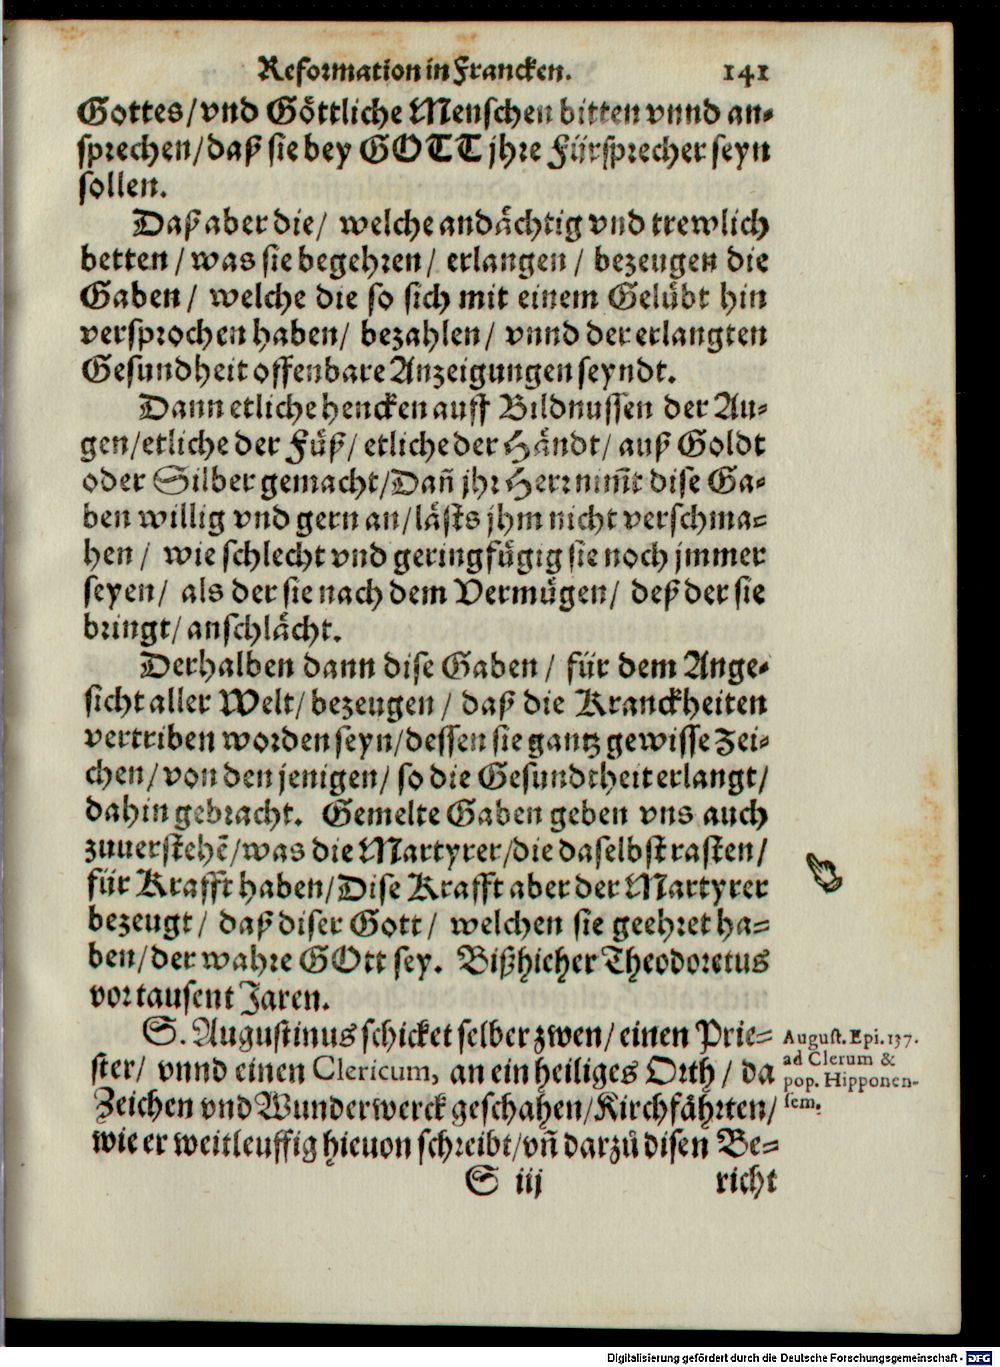 Reformation in Francken. 141
Gottes/ vnd Göttliche Menschen bitten vnnd an-
sprechen/ daß sie bey GOTT jhre Fürsprecher seyn
sollen.
Daß aber die/ welche andächtig vnd trewlich
betten/ was sie begehren/ erlangen/ bezeugen die
Gaben/ welche die so sich mit einem Gelübt hin
versprochen haben/ bezahlen/ vnnd der erlangten
Gesundheit offenbare Anzeigungen seyndt.
Dann etliche hencken auff Bildnussen der Au-
gen/ etliche der Füß/ etliche der Händt/ auß Goldt
oder Silber gemacht/ Dañ jhr Herr nim̄t dise Ga-
ben willig vnd gern an/ lästs jhm nicht verschma-
hen/ wie schlecht vnd geringfügig sie noch jmmer
seyen/ als der sie nach dem Vermügen/ deß der sie
bringt/ anschlächt.
Derhalben dann dise Gaben/ für dem Ange-
sicht aller Welt/ bezeugen/ daß die Kranckheiten
vertriben worden seyn/ dessen sie gantz gewisse Zei-
chen/ von den jenigen/ so die Gesundtheit erlangt/
dahin gebracht. Gemelte Gaben geben vns auch
zuuerstehẽ/ was die Martyrer/ die daselbst rasten/
für Krafft haben/ Dise Krafft aber der Martyrer
bezeugt/ daß diser Gott/ welchen sie geehret ha-
ben/ der wahre GOtt sey. Bißhieher Theodoretus
vor tausent Jaren.
S. Augustinus schicket selber zwen/ einen Prie-
ster/ vnnd einen Clericum, an ein heiliges Orth/ da
Zeichen vnd Wunderwerck geschahen/ Kirchfährten/
wie er weitleuffig hieuon schreibt/ vñ darzů disen Be-
August. Epi. 137.
ad Clerum &
pop. Hipponen-
sem.
S iij richt
Digitalisierung gefördert durch die Deutsche Forschungsgemeinschaft - DFG